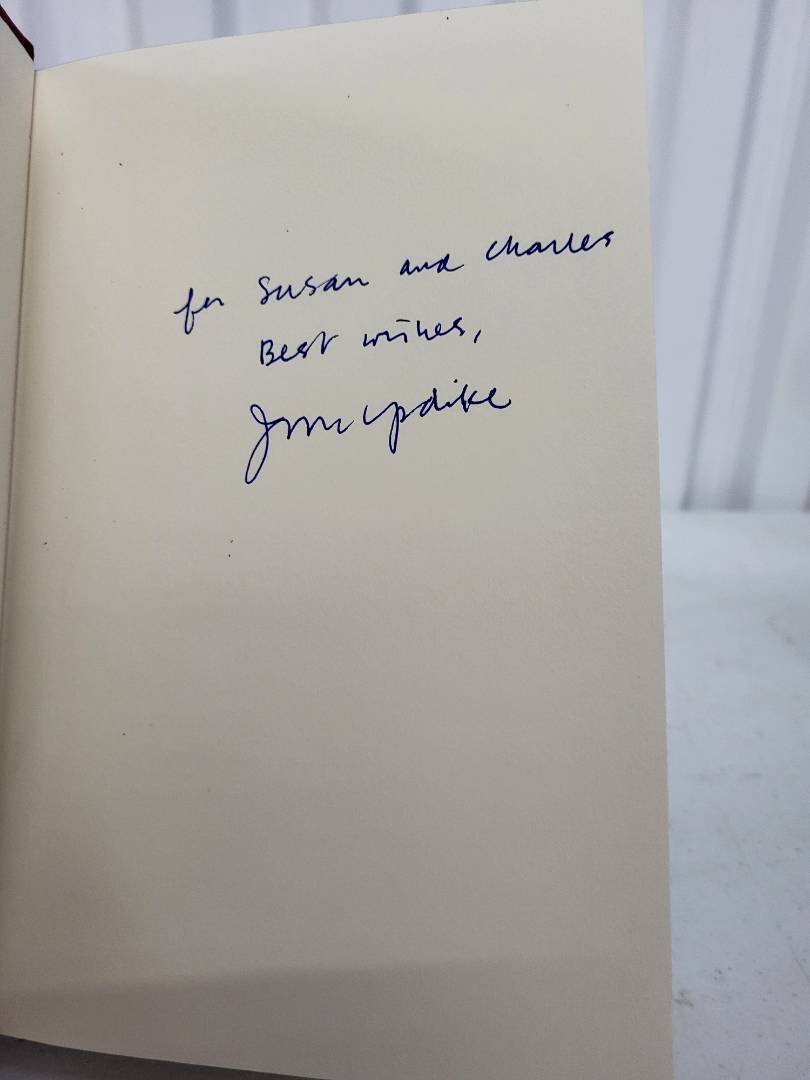 for Susan and Charles
Best wishes,
John Updike